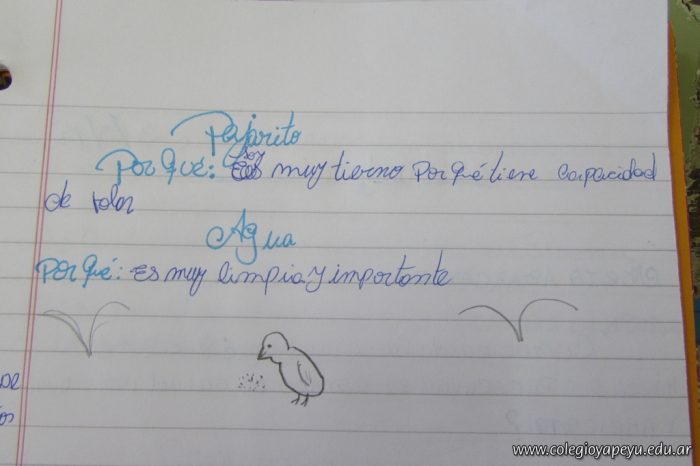 Pajarito
Por qué: Es muy tierno Por qué tiene capacidad
de volar
Agua
Por qué: Es muy limpia y importante
DE
os
www.colegioyapeyu.edu.ar